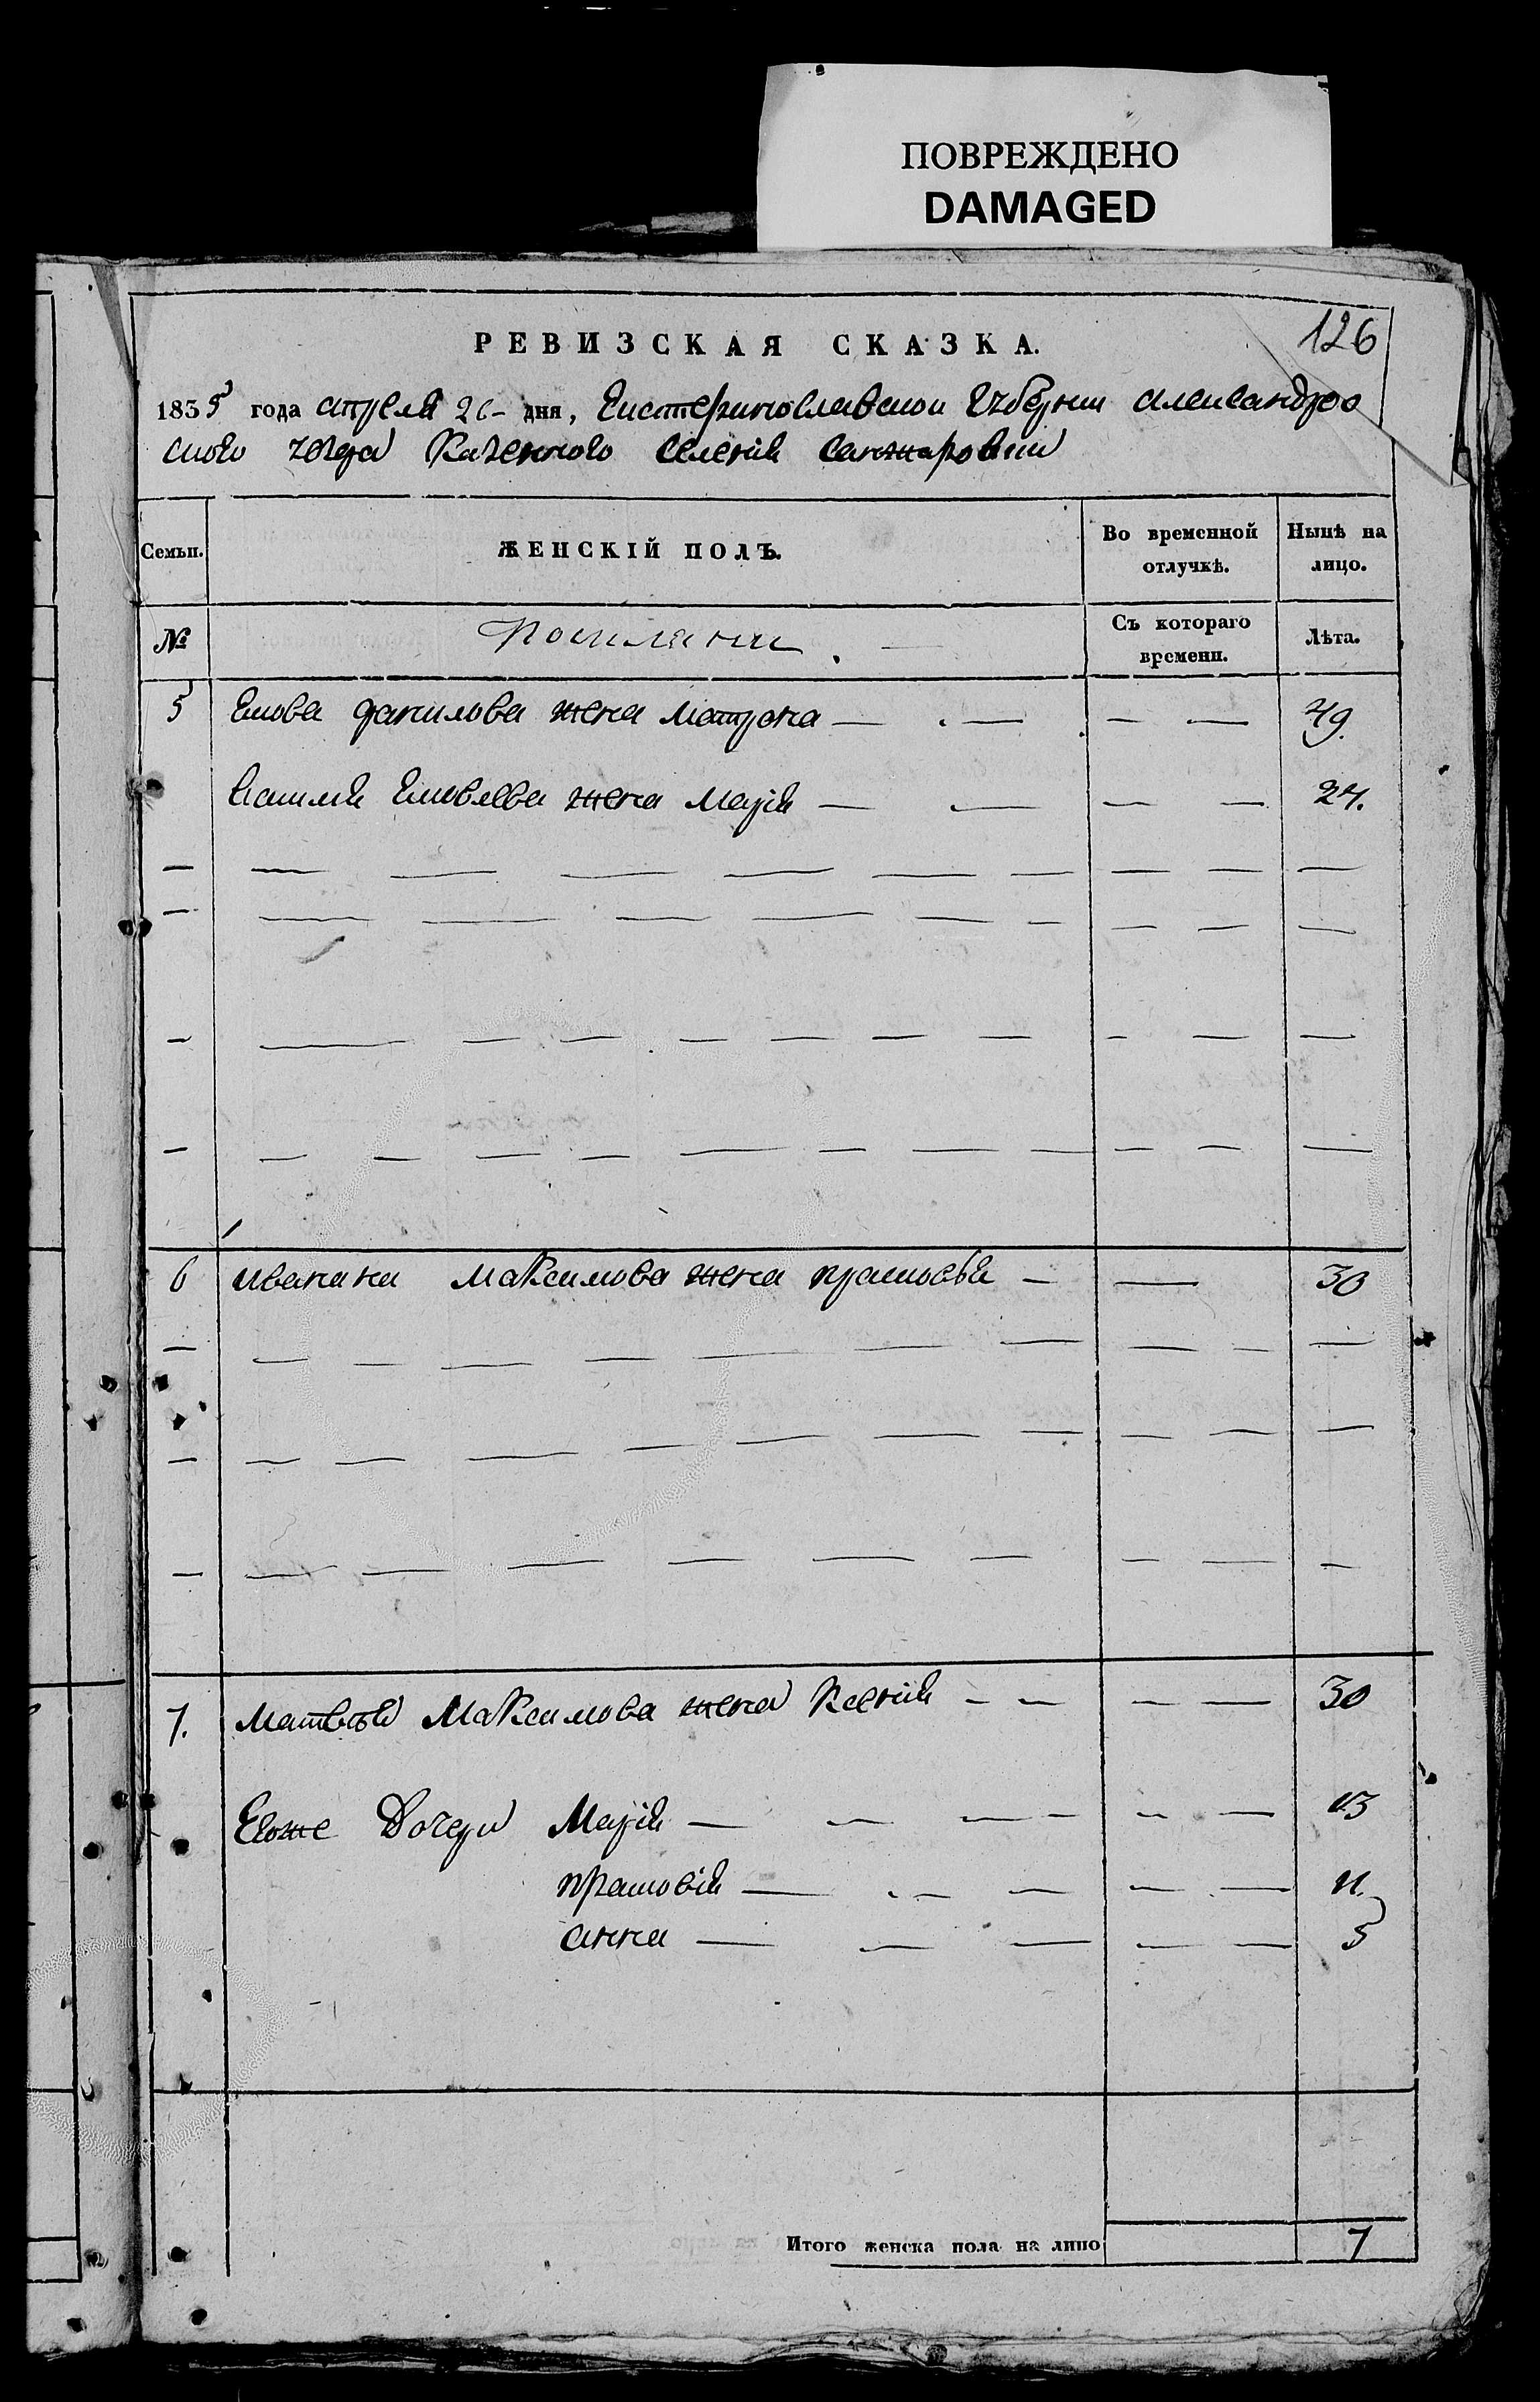 ПОВРЕЖДЕНО
DAMAGED
126
РЕВИЗСКАЯ СКАЗКА.
1835 года апреля 26 - дня, Екатеринославской губернии александров
ского уезда Казенного селения санжаровки
Семьи.
ЖЕНСКІЙ ПОЛЪ.
Во временной отлучкѣ.
Нынѣ на лицо.
№
Съ котораго времени.
Лѣта.
5 Якова данилова жена матрона — . — — — 49.
Яковлева жена Марія — — — — 24.
6 Максимова жена прасковья — — 30
7. Матвѣя Максимова жена Ксенія — — — — 30
Егоже Дочери Марія — — — — — 13
прасковія — . — — — . — 11.
анна — — — — — 5
Итого женска пола на лицо 7